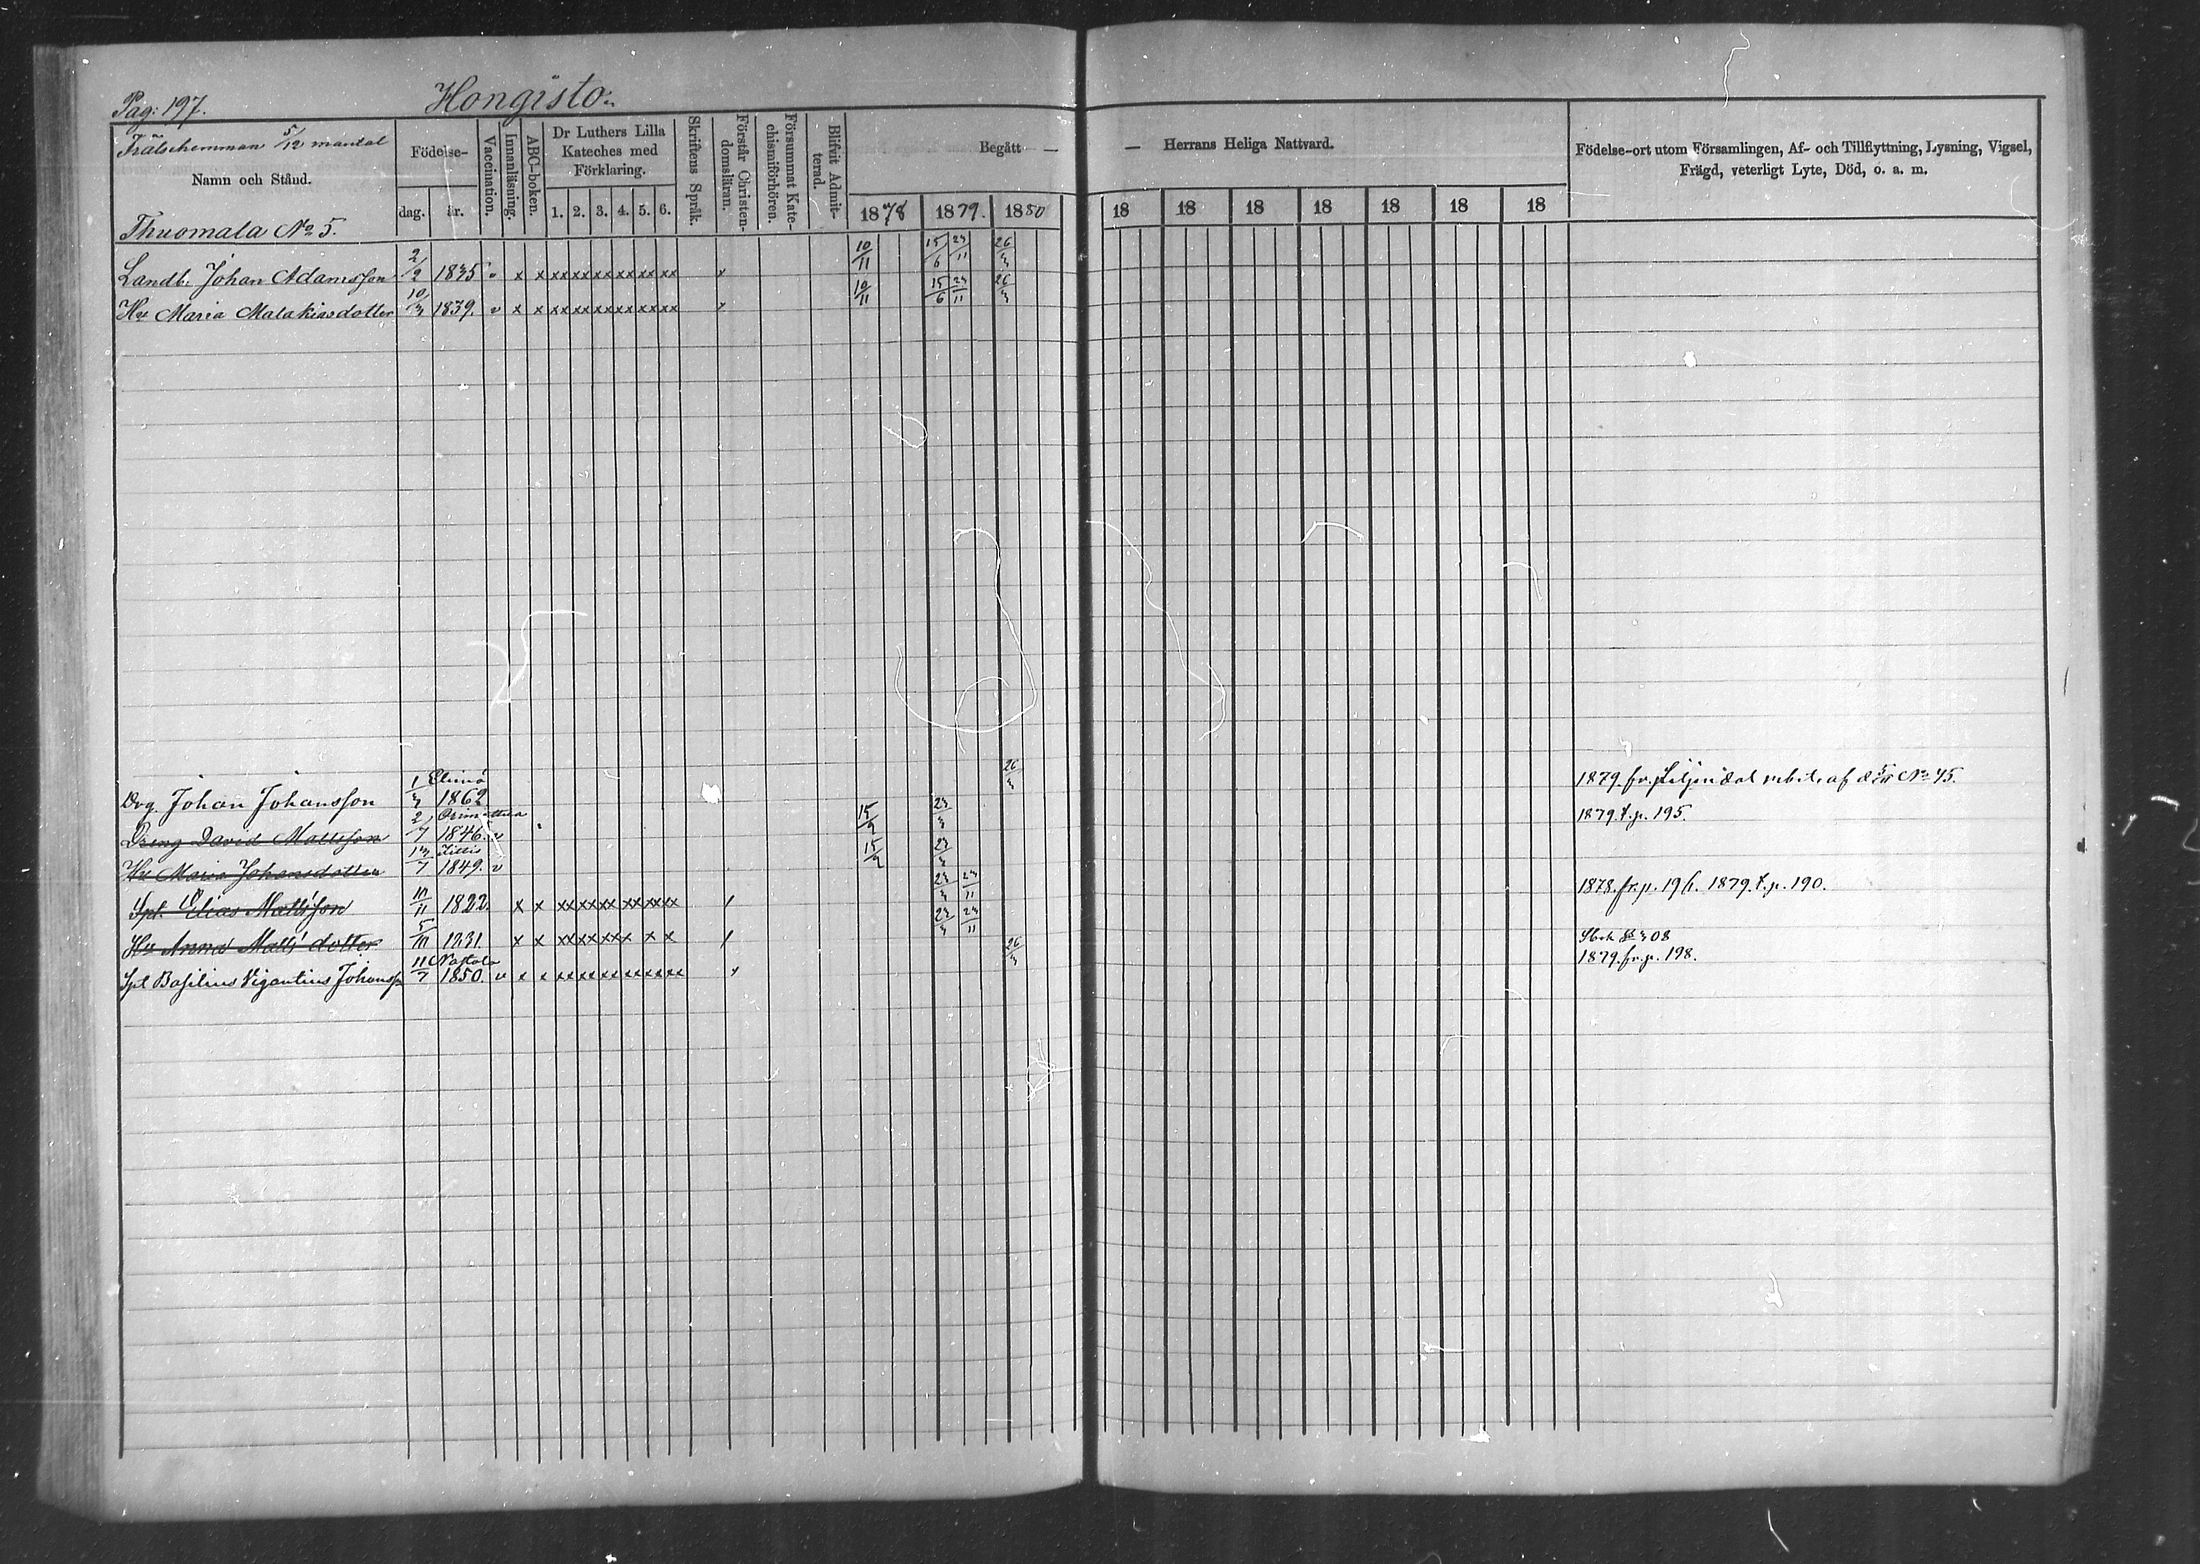 Pag: 197. Hongisto
Frälsehemman 5/12 mantal
Namn och Stånd.
Födelse-
dag. år.
Vaccination.
Innanläsning.
ABC-boken.
Dr Luthers Lilla Kateches med Förklaring.
1. 2. 3. 4. 5. 6.
Skriftens Språk.
Förstår Christendomsläran.
Försummat Katechismiförhören.
Blifvit Admitterad.
Begått — — Herrans Heliga Nattvard.
1878 1879. 1880 18 18 18 18 18 18 18
Födelse-ort utom Församlingen, Af- och Tillflyttning, Lysning, Vigsel,
Frägd, veterligt Lyte, Död, o. a. m.
Thuomala No 5.
Landb. Johan Adamsson 2/2 1835 v x x xx xx xx xx xx xx x 10/11 15/6 23/11 26/3
Hu Maria Malakiasdotter 10/3 1839. v x x xx xx xx xx xx xx x 10/11 15/6 23/11 26/3
Elimä
Drg Johan Johansson 1/3 1862 26/3 1879. fr. Liljendal No 45.
Orimattila
Dreng David Mattsson 2/7 1846 v 15/9 23/3 1879. t. p. 195.
Jittis
Hu Maria Johansdotter 13/7 1849. v 15/9 23/3
Spt. Elias Mattsson 10/11 1822. x x xx xx xx xx xx xx / 23/3 23/11 1878. fr. p. 196. 1879. t. p. 190.
Hu Anna Matts dotter 5/10 1831. x x xx xx xx xx x x / 23/3 23/11
Nastola
Spt Basilius Vigantius Johanss 11/7 1850. v x x xx xx xx xx xx xx x 26/3 1879. fr. p. 198.